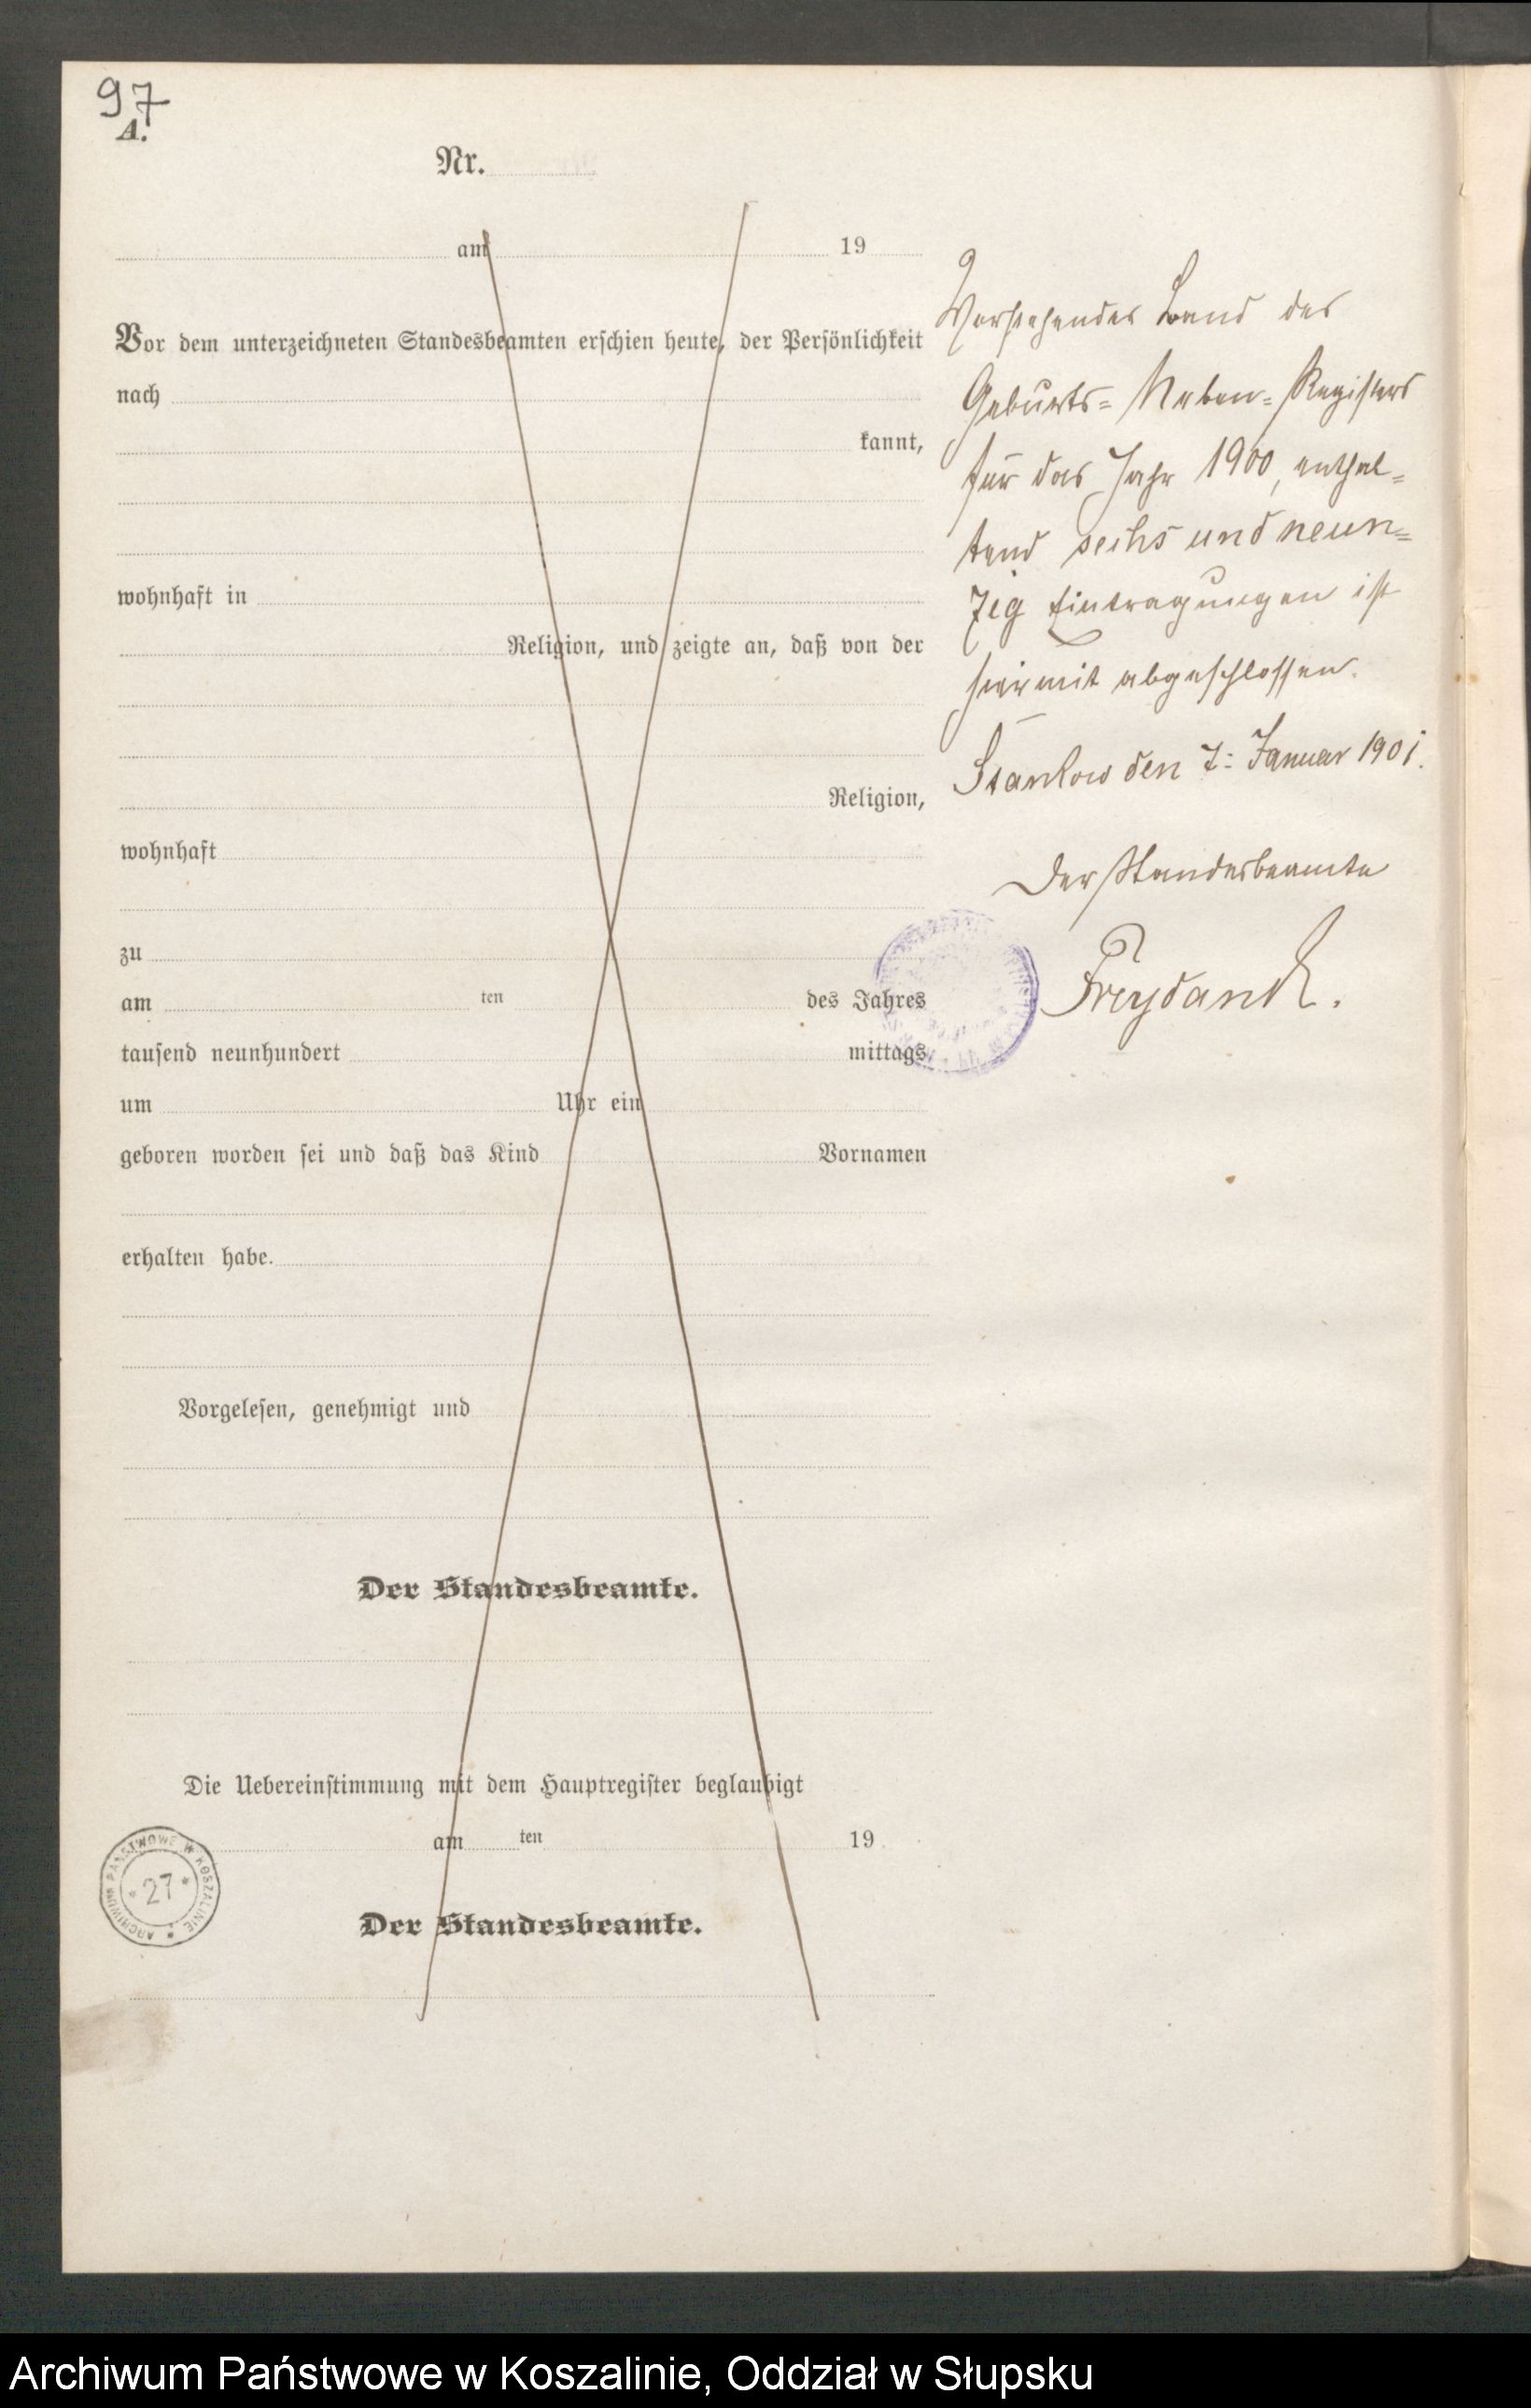 97
A.
Nr.
am 19
Vor dem unterzeichneten Standesbeamten erschien heute, der Persönlichkeit
nach
kannt,
wohnhaft in
Religion, und zeigte an, daß von der
Religion,
wohnhaft
zu
am ten des Jahres
tausend neunhundert mittags
um Uhr ein
geboren worden sei und daß das Kind Vornamen
erhalten habe.
Vorgelesen, genehmigt und
Der Standesbeamte.
Die Uebereinstimmung mit dem Hauptregister beglaubigt
am ten 19
Der Standesbeamte.
Vorstehender Band des
Geburts= Neben= Registers
für das Jahr 1900, enthal=
tend sechs und neun=
zig Eintragungen ist
hiermit abgeschlossen.
den 7. Januar 1901.
Der Standesbeamte
Freydanck.
ARCHIWUM PAŃSTWOWE W KOSZALINIE
* 27 *
Archiwum Państwowe w Koszalinie, Oddział w Słupsku